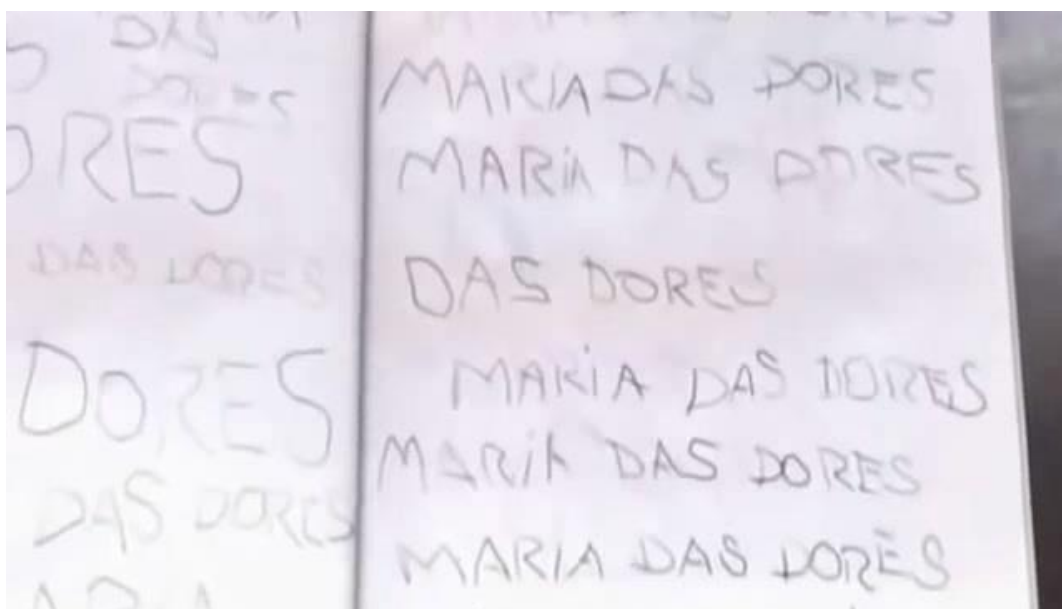 DAS
DORES
ORES
DAS DORES
DORES
DAS DORES
MARIA DAS DORES
MARIA DAS DORES
DAS DORES
MARIA DAS DORES
MARIA DAS DORES
MARIA DAS DORES